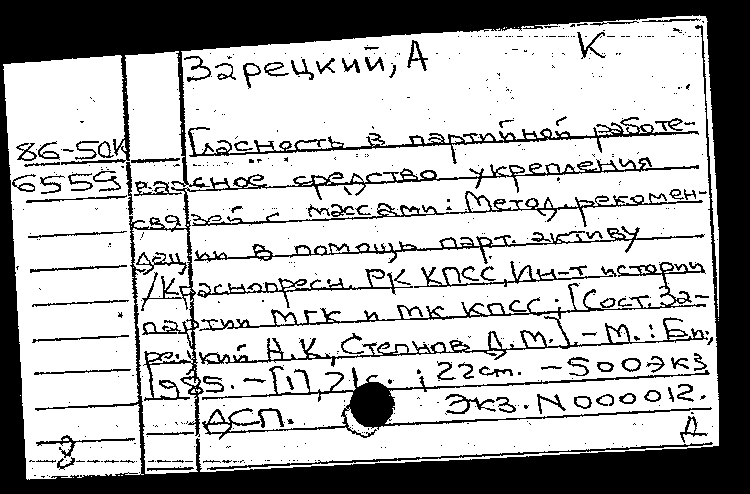 Зарецкий, А К
86-50К Гласность в партийной работе-
6559 важное средство укрепления
связей с массами: Метод. рекомен-
дации в помощь парт. активу
/Краснопресн. РК КПСС, Ин-т истории
партии МГК и МК КПСС; [Сост. За-
рецкий А.К., Степнов Д.М.]. - М.: Б.и.,
1985. - [17,2]с. ; 22см. - 500экз
ДСП. Экз. N 000012.
8 Д